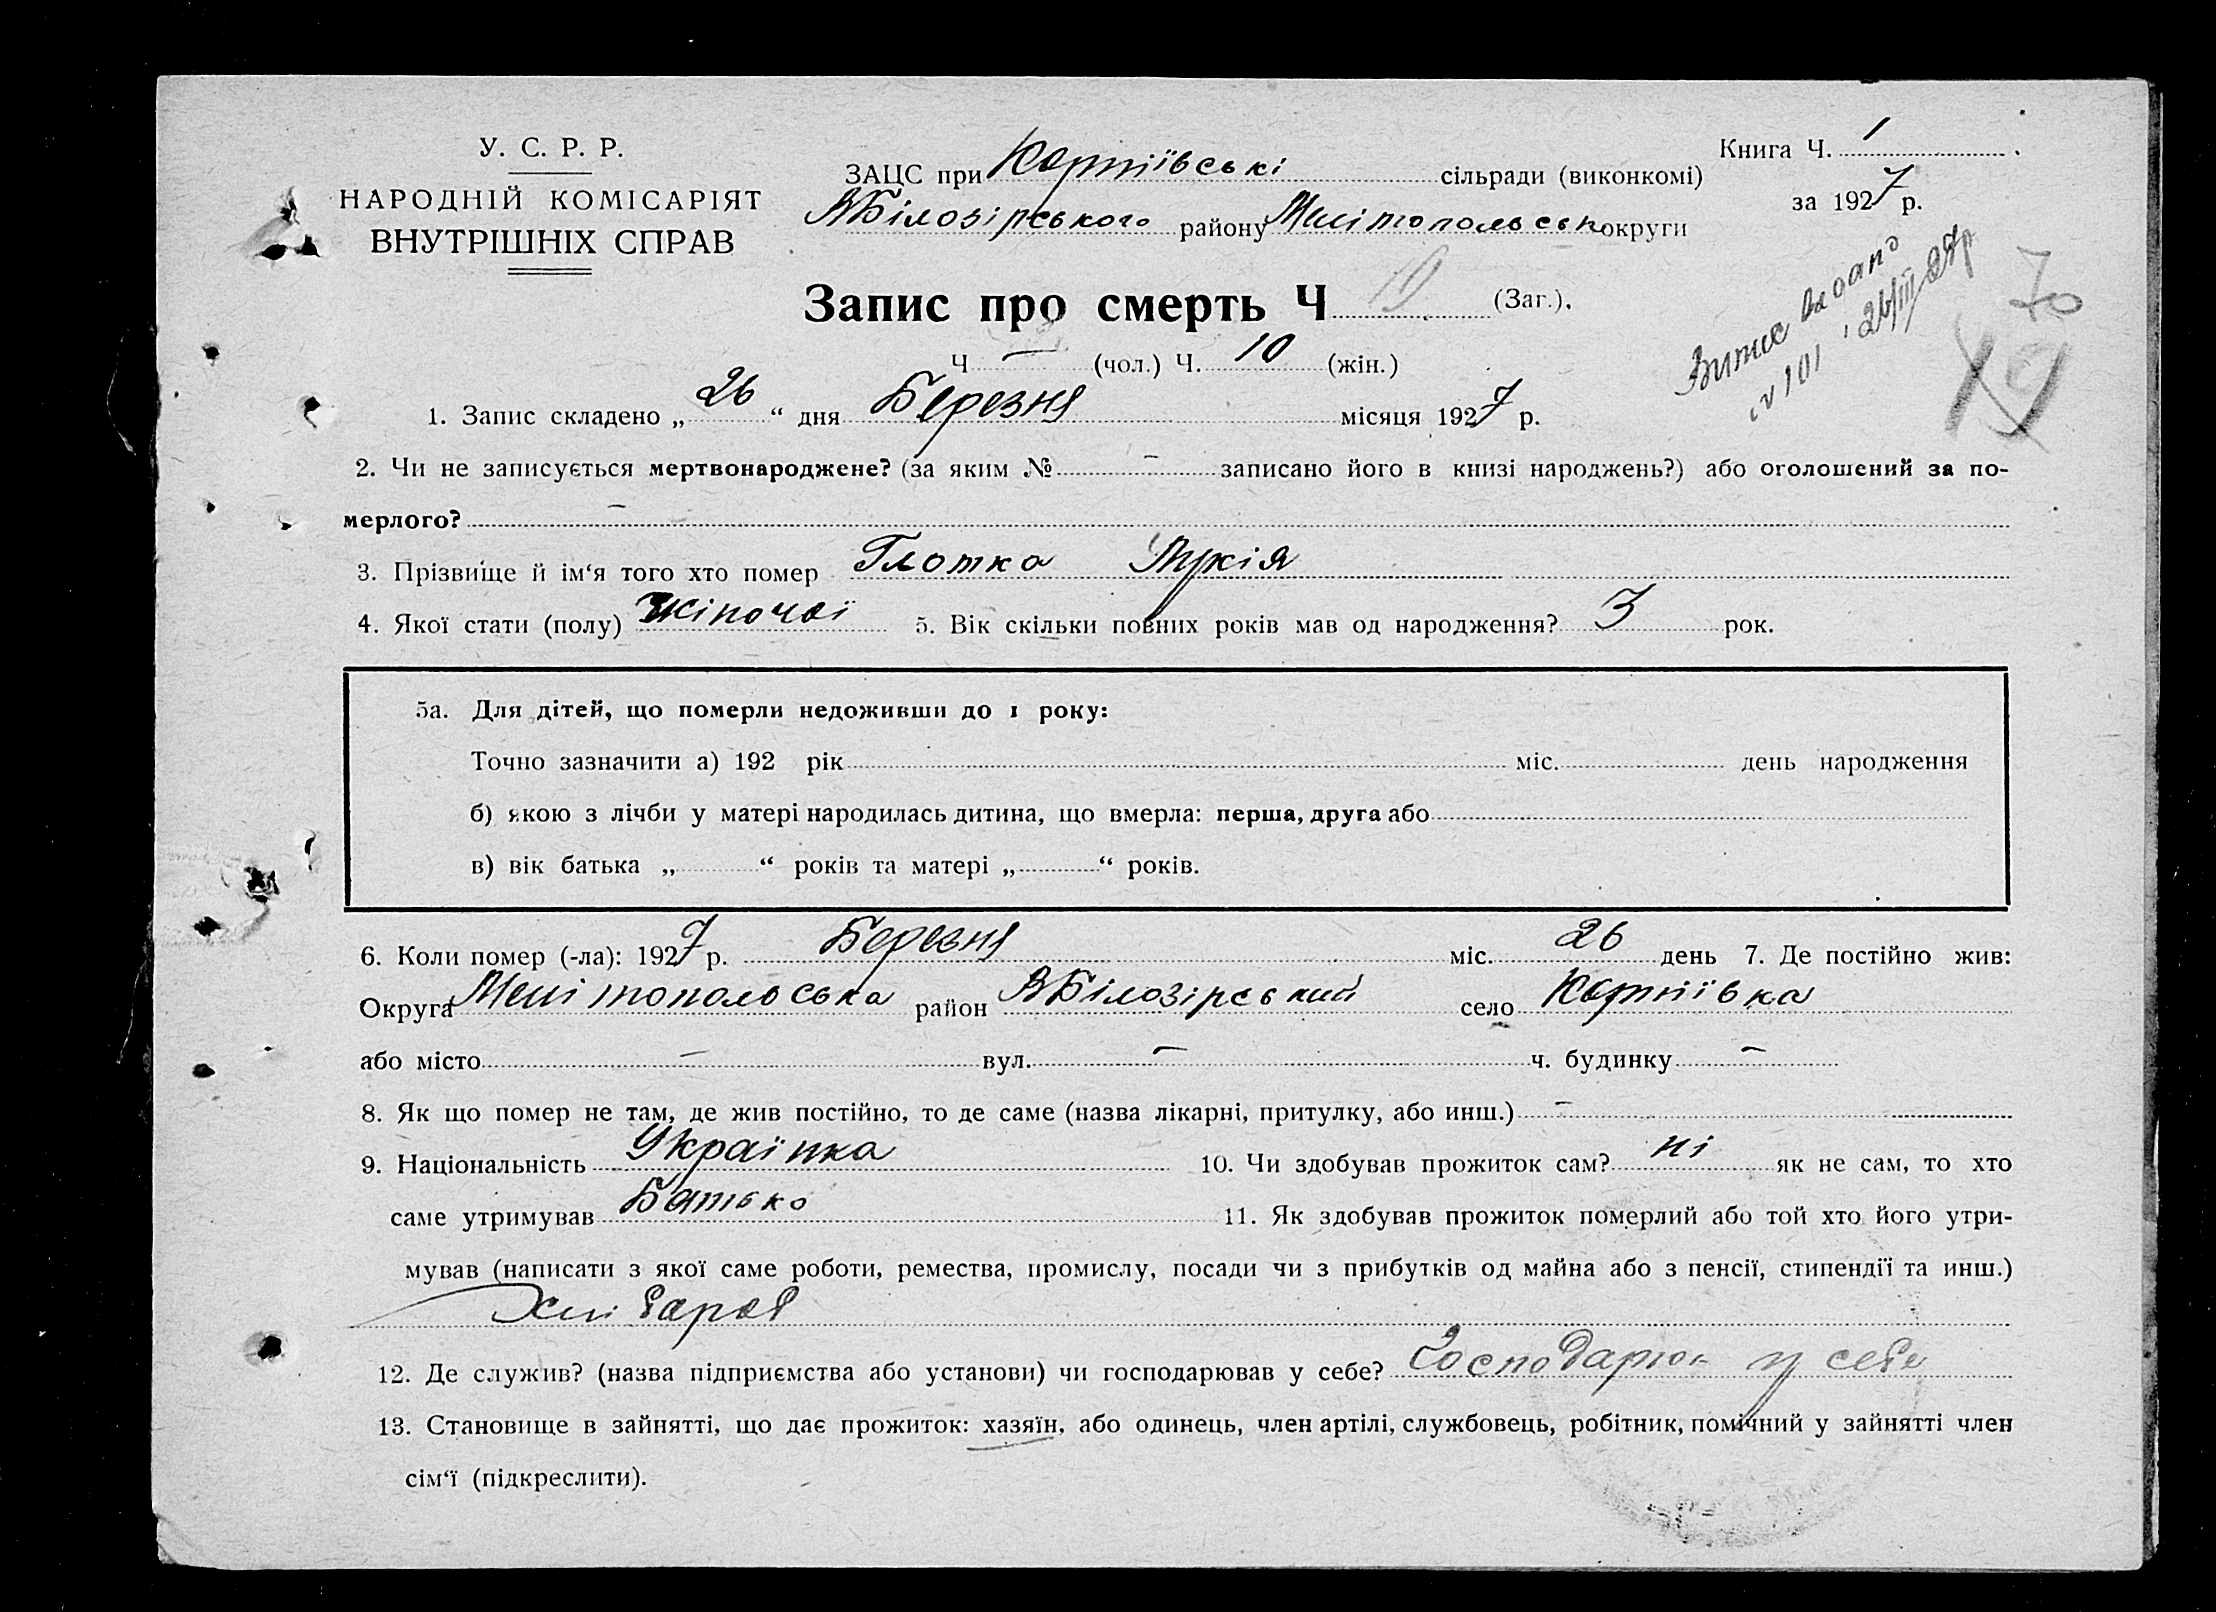 У. С. Р. Р.
НАРОДНІЙ КОМІСАРІЯТ
ВНУТРІШНІХ СПРАВ
ЗАЦС при Корніївські сільради (виконкомі)
ВБілозірського району Мелітопольськ округи
Книга Ч. 1
за 1927 р.
Витяг видано
№ 101 26/III 27р
70
Запис про смерть Ч (Заг.).
Ч — (чол.) Ч. 10 (жін.)
1. Запис складено „26“ дня Березня місяця 1927 р.
2. Чи не записується мертвонароджене? (за яким № — записано його в книзі народжень?) або оголошений за по-
мерлого? —
3. Прізвище й ім‘я того хто помер Глотка Лукія
4. Якої стати (полу) жіночої 5. Вік скільки повних років мав од народження? 3 рок.
5а. Для дітей, що померли недоживши до 1 року:
Точно зазначити а) 192 рік міс. день народження
б) якою з лічби у матері народилась дитина, що вмерла: перша, друга або
в) вік батька „ “ років та матері „ “ років.
6. Коли помер (-ла): 1927 р. Березня міс. 26 день 7. Де постійно жив:
Округа Мелітопольська район ВБілозірський село Корніївка
або місто — вул. — ч. будинку —
8. Як що помер не там, де жив постійно, то де саме (назва лікарні, притулку, або инш.) —
9. Національність Українка 10. Чи здобував прожиток сам? ні як не сам, то хто
саме утримував Батько 11. Як здобував прожиток померлий або той хто його утри-
мував (написати з якої саме роботи, ремества, промислу, посади чи з прибутків од майна або з пенсії, стипендії та инш.)
Хлібороб
12. Де служив? (назва підприємства або установи) чи господарював у себе? Господарює у себе
13. Становище в зайнятті, що дає прожиток: хазяїн, або одинець, член артілі, службовець, робітник, помічний у зайнятті член
сім‘ї (підкреслити).